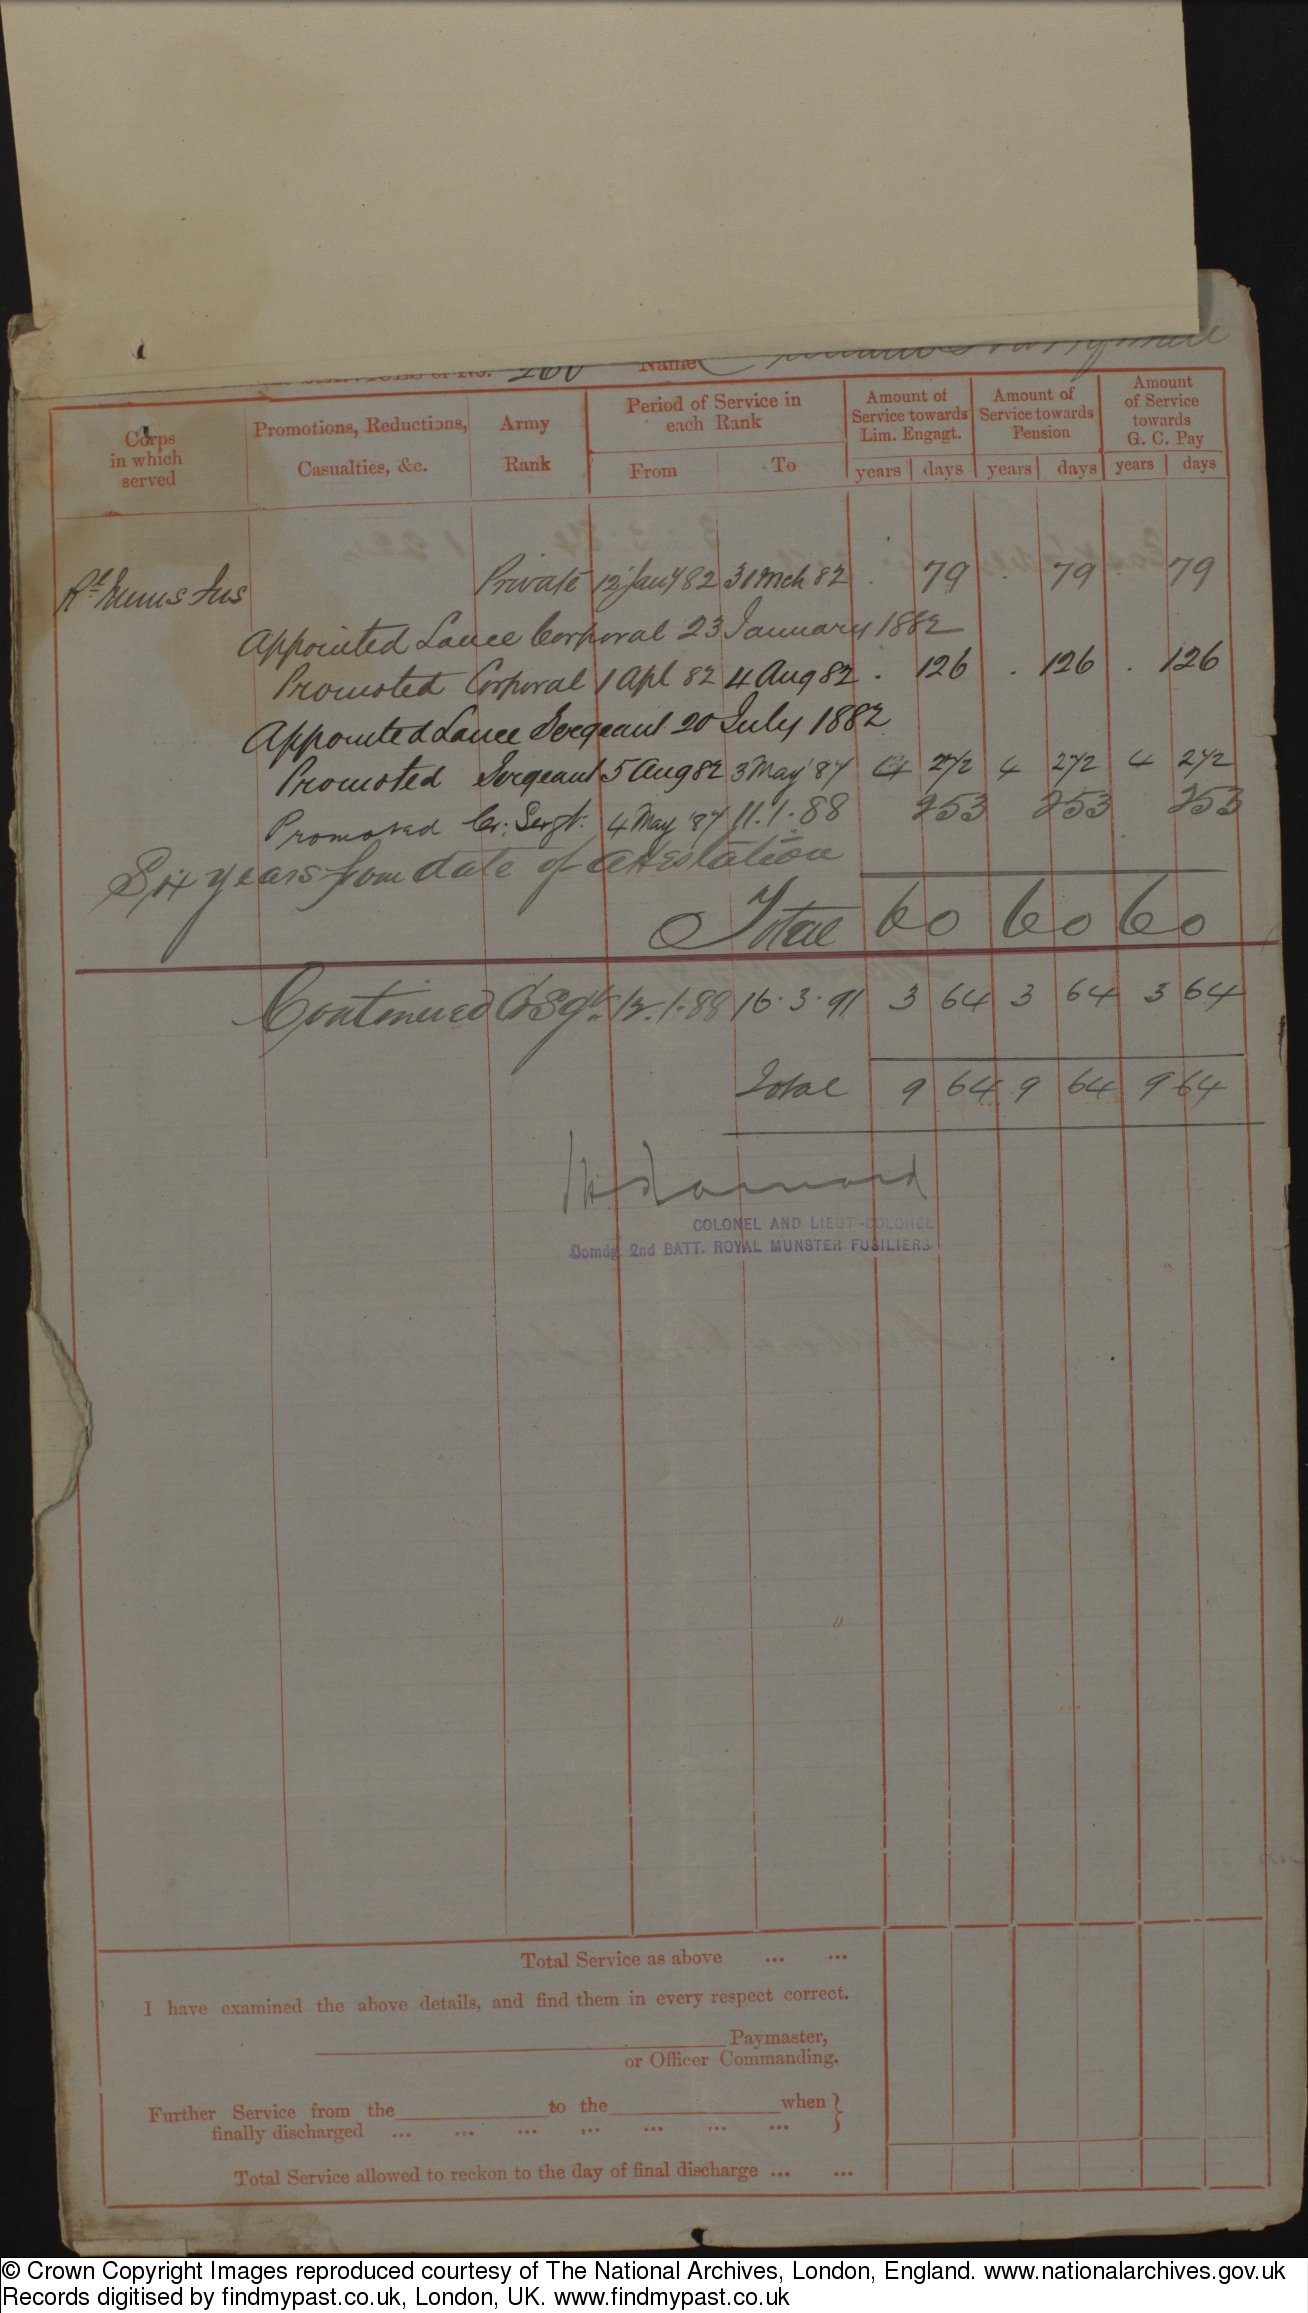 No. 260 Name
Corps in which served | Promotions, Reductions, Casualties, &c. | Army Rank | Period of Service in each Rank | Amount of Service towards Lim. Engagt. | Amount of Service towards Pension | Amount of Service towards G. C. Pay
From | To | years | days | years | days | years | days
Rl Muns Fus Private 12 Jany 82 31 Mch 82 . 79 . 79 . 79
Appointed Lance Corporal 23 January 1882
Promoted Corporal 1 Apl 82 4 Aug 82 . 126 . 126 . 126
Appointed Lance Sergeant 20 July 1882
Promoted Sergeant 5 Aug 82 3 May '87 4 272 4 272 4 272
Promoted Cr: Sergt: 4 May '87 11.1.88 253 253 253
Six years from date of attestation
Total 6 0 6 0 6 0
Continued C/Sgt. 12.1.88 16.3.91 3 64 3 64 3 64
Total 9 64 9 64 9 64
COLONEL AND LIEUT-COLONEL
Comdg. 2nd BATT. ROYAL MUNSTER FUSILIERS.
Total Service as above ... ...
I have examined the above details, and find them in every respect correct.
Paymaster,
or Officer Commanding.
Further Service from the to the when }
finally discharged ... ... ... ... ... ... ...
Total Service allowed to reckon to the day of final discharge ... ...
© Crown Copyright Images reproduced courtesy of The National Archives, London, England. www.nationalarchives.gov.uk
Records digitised by findmypast.co.uk, London, UK. www.findmypast.co.uk